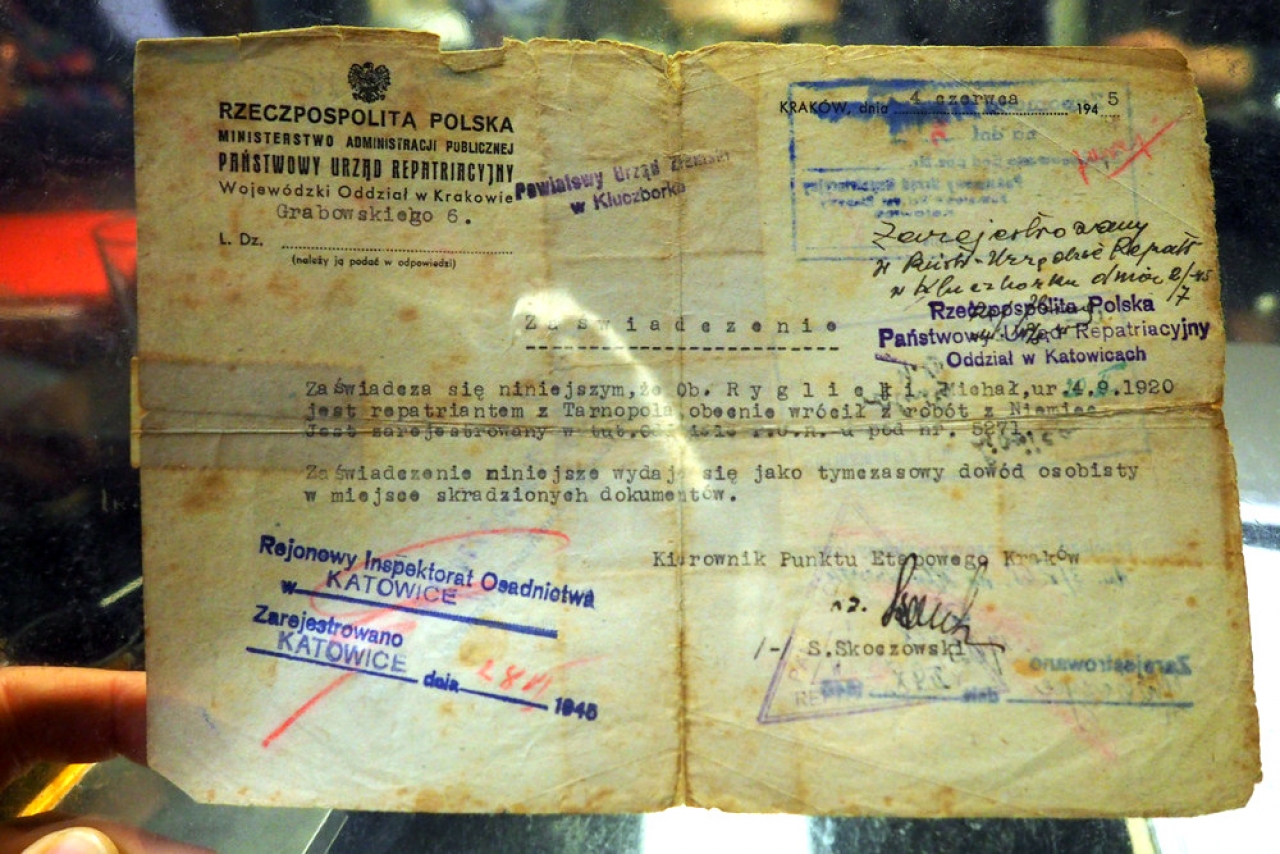 RZECZPOSPOLITA POLSKA
MINISTERSTWO ADMINISTRACJI PUBLICZNEJ
PAŃSTWOWY URZĄD REPATRIACYJNY
Wojewódzki Oddział w Krakowie
Grabowskiego 6.
L. Dz.
(należy ją podać w odpowiedzi)
Powiatowy Urząd Ziemski
w Kluczborku
KRAKÓW, dnia 4 czerwca 1945
Zarejestrowany
w Kluczborku dnia 2/7 45
Rzeczpospolita Polska
Państwowy Urząd Repatriacyjny
Oddział w Katowicach
Zaświadczenie
Zaświadcza się niniejszym, że Ob. Ryglicki Michał, ur. 4.9.1920
jest repatriantem z Tarnopola, obecnie wrócił z robót z Niemiec
Jest zarejestrowany w tut. Oddziale P.U.R. u pod nr. 5271.
Zaświadczenie niniejsze wydaje się jako tymczasowy dowód osobisty
w miejsce skradzionych dokumentów.
Kierownik Punktu Etapowego Kraków
nz.
/-/ S.Skoczowski
Rejonowy Inspektorat Osadnictwa
w KATOWICE
Zarejestrowano
KATOWICE dnia 28 VI 1945